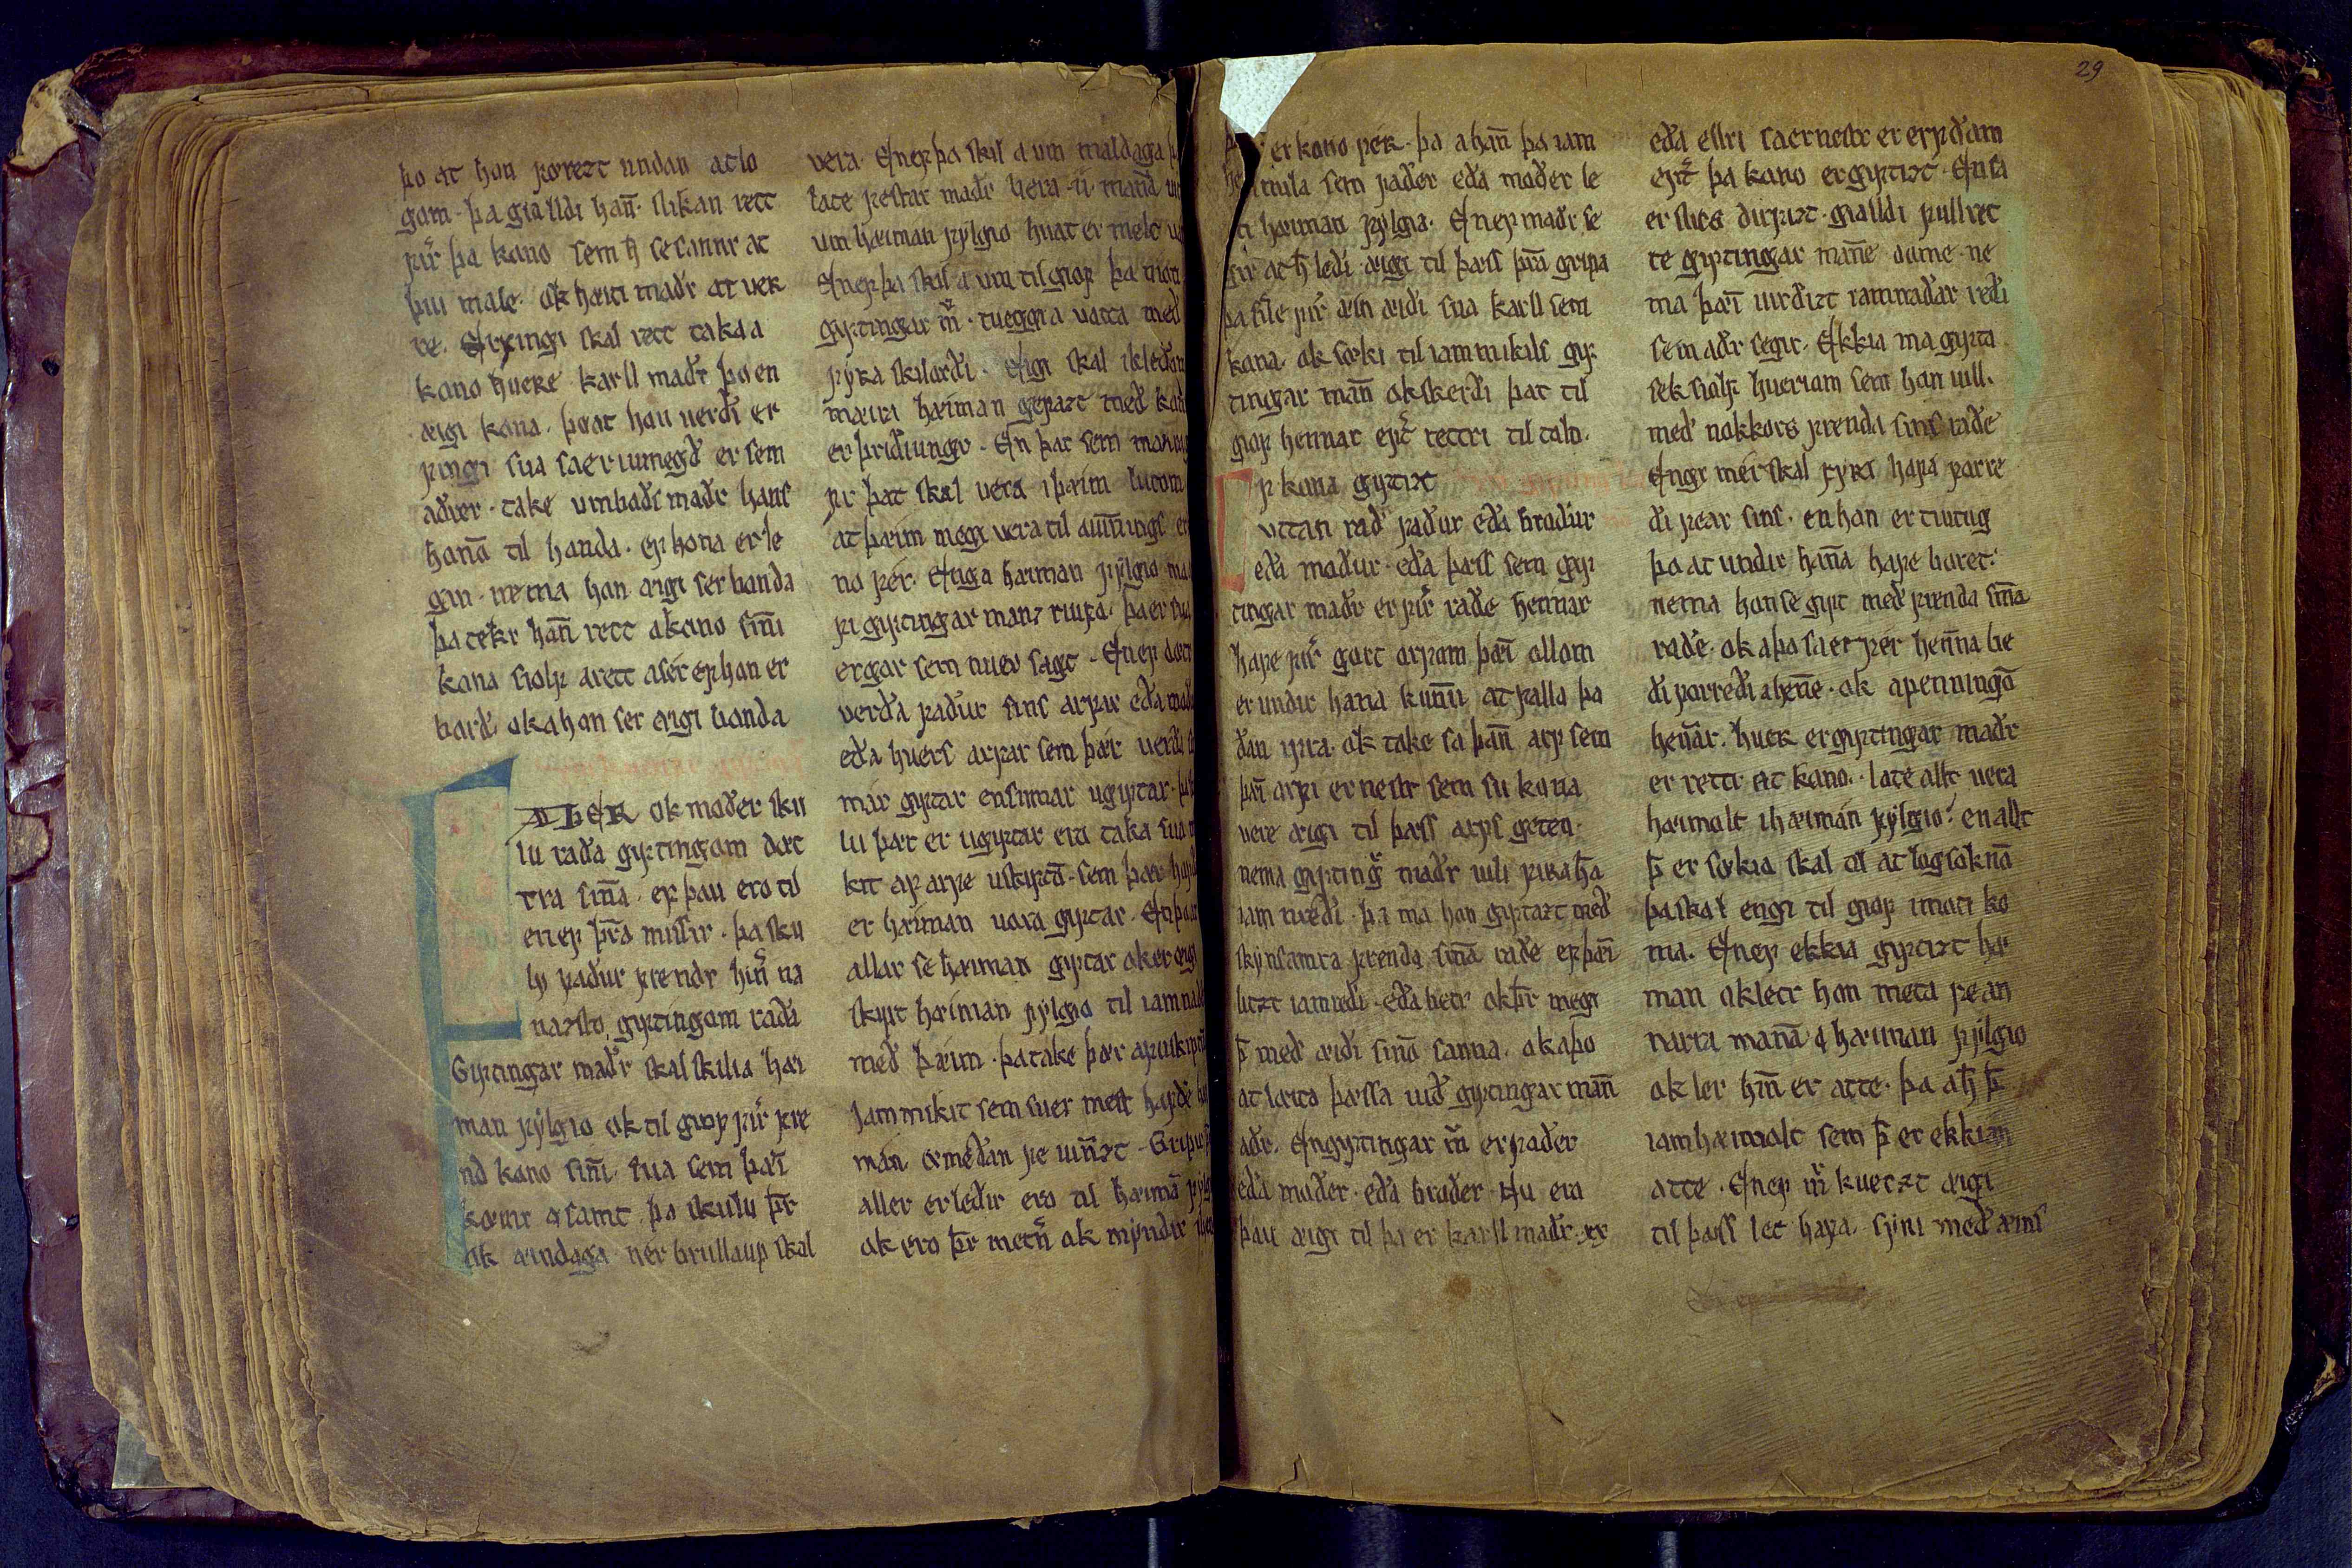 þo at hon forezt undan at lo
gom. þa gialldi han̄. slikan rett
fir̃ þa kono sem h̄ se sannr at
þui male. ok hæiti maðr at uer
re. Erfingi skal rett taka a
kono huere karll maðr þo en
æigi kona. þo at hon uerði er
fingi sua sa er i umegð er sem
aðrer. take umboðs maðr hans
hanō til handa. ef hona er le
gin. nema hon æigi ser bonda
þa tekr han̄ rett a kono sin̄i
kona sialf a rett a ser ef hon er
barð. ok a hon ser æigi bonda
AÐER ok moðer sku
lu raða giftingom dœt
tra sin̄a. ef þau ero til
en ef þr̄a missir. þa sku
lu faður frendr hin̄ na
nazsto giftingom raða
Giftingar maðr skal skilia hæi
man fylgio ok til giof fir̃ fre
nd kono sin̄i. sua sem þæī
kœmr a samt. þa skulu þr̄
ok æindaga ner brullaup skal
vera. En ef þa skil a um maldaga
late festar maðr bera .ii. manna
um hæiman fylgio huat er melt
En ef þa skil a um til giof þa
giftingar m̄. tueggia uatta með
fyra skilorði. Eigi skal
mæira hæiman gefazt með
er þriðiungr. En þar sem
fir þat skal vera i þæim lutom
at þæim megi vera til aun̄ungs
no fér. Enga hæiman fylgio
fi giftingar manz riufa. þa er
er gar sem nu er sagt. En ef dœtr
verða faður sins arfar eða
eða huers arfar sem þær verða
nar giftar en sumar ugiftar.
lu þær er ugiftar ero taka sua
kit af arfe uskiptō. sem þær
er hæiman uoro giftar. En þo
allar se hæiman giftar ok er æigi
skipt hæiman fylgio til
með þæim. þa take þær af uskiptō
Jam mikit sem su er mest hafðe
man. œ meðan fe uin̄zt. Gripir
aller er leðir ero til hæimā
ok ero þr̄ metn̄ ok myndir
er kono fek. þa a han̄ þa iam
mila sem faðer eða moðer se
hæiman fylgia. En ef maðr se
gir at h̄ leði æigi til þæss þr̄a gripa
þa sile fir̃ æin æiði sua karll sem
kona. ok sœki til iam mikils gif
tingar man̄ ok skerði þat til
giof hennar eft̄ rettri til talo.
Ef kona giftizt
uttan rað faður eða broður
eða moður. eða þæss sem gif
tingar maðr er fir̃ raðe hennar
hafe fir̃ gort arfom þæī ollom
er undir hana kun̄u at falla þa
ðan ifra. ok take sa þan̄ arf sem
þæī arfi er nestr sem su kona
vere æigi til þæss arfs geten.
nema gifting̃ maðr uili fira h̄a
iam reði. þa ma hon giftazt með
skynsamra frenda sin̄a raðe ef þæī
litzt iam reði. eða betr ok h̄r megi
þ̄ með æiði sinō sanna. ok a þo
at lœita þæssa uið giftingar man̄
aðr. En giftingar m̄ er faðer
eða moðer. eða broðer. Nu ero
þau æigi til þa er karll maðr .xv
eða ellri sa er nestr er erfðam
eft̄ þa kono er giftizt. En sa
er slics dirfizt. gialldi full ret
te giftingar man̄e dome. ne
ma þæī uirðizt iamnaðar reði
sem aðr segir. Ekkia ma gifta
sek sialf hueriam sem hon uill.
með nokkors frenda sins raðe
Engi mœr skal fyri hafa forre
ði fear sins. en hon er tuitug
þo at undir han̄a hafe boret.
nema hon se gift með frenda sin̄a
raðe. ok a þo sa er fer hen̄na be
ði forreði a hen̄e. ok a penningō
hen̄ar. huer er giftingar maðr
er rettr at kono. late allt vera
hæimolt i hæiman fylgio. en allt
þ̄ er sœkia skal til at logsoknō
þa skal engi til giof i moti ko
ma. En ef ekkia giftizt hæi
man ok letr hon meta fe an
narra manā a hæiman fylgio
ok ler hin̄ er atte. þa a h̄ þ̄
iamhæimolt sem þ̄ er ekkian
atte. En ef m̄ kuezt æigi
til þæss let hafa. syni með æins
29